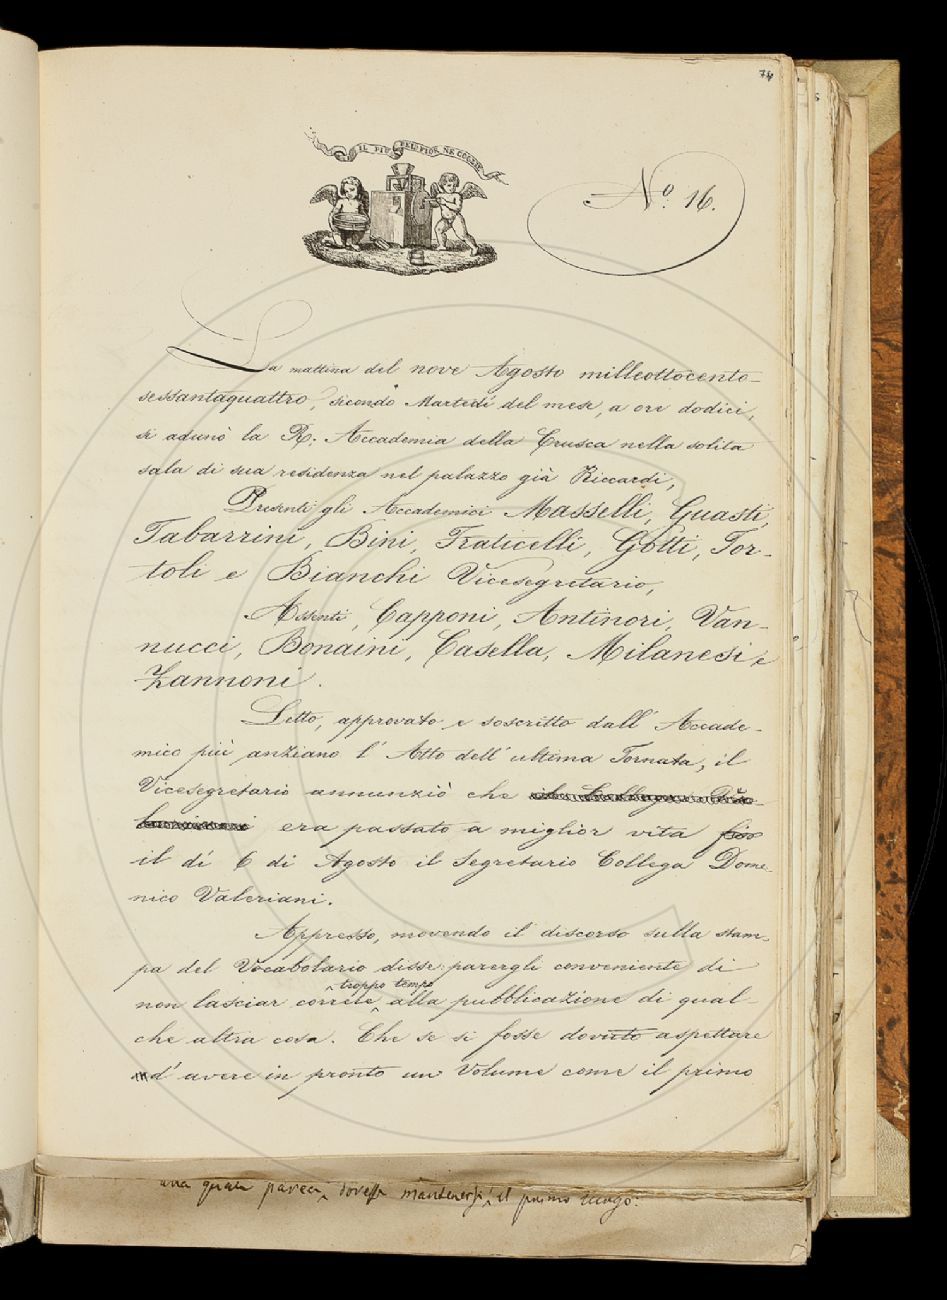 74
IL PIU BEL FIOR NE COGLIE
Nº. 16.
La mattina del nove Agosto milleottocento-
sessantaquattro, secondo Martedí del mese, a ore dodici,
si adunò la R. Accademia della Crusca nella solita
sala di sua residenza nel palazzo già Riccardi,
Presenti gli Accademici Masselli, Guasti,
Tabarrini, Bini, Fraticelli, Gotti, Tor-
toli e Bianchi Vicesegretario,
Assenti, Capponi, Antinori, Van-
nucci, Bonaini, Casella, Milanesi e
Zannoni.
Letto, approvato e soscritto dall' Accade-
mico più anziano l' Atto dell' ultima Tornata, il
Vicesegretario annunziò che
era passato a miglior vita fino
il dí 6 di Agosto il Segretario Collega Dome-
nico Valeriani.
Appresso, movendo il discorso sulla stam-
pa del Vocabolario disse: parergli conveniente di
troppo tempo
non lasciar correre alla pubblicazione di qual-
che altra cosa. Che se si fosse dovuto aspettare
d' avere in pronto un Volume come il primo
una pareva dovesse mantenersi il primo luogo.